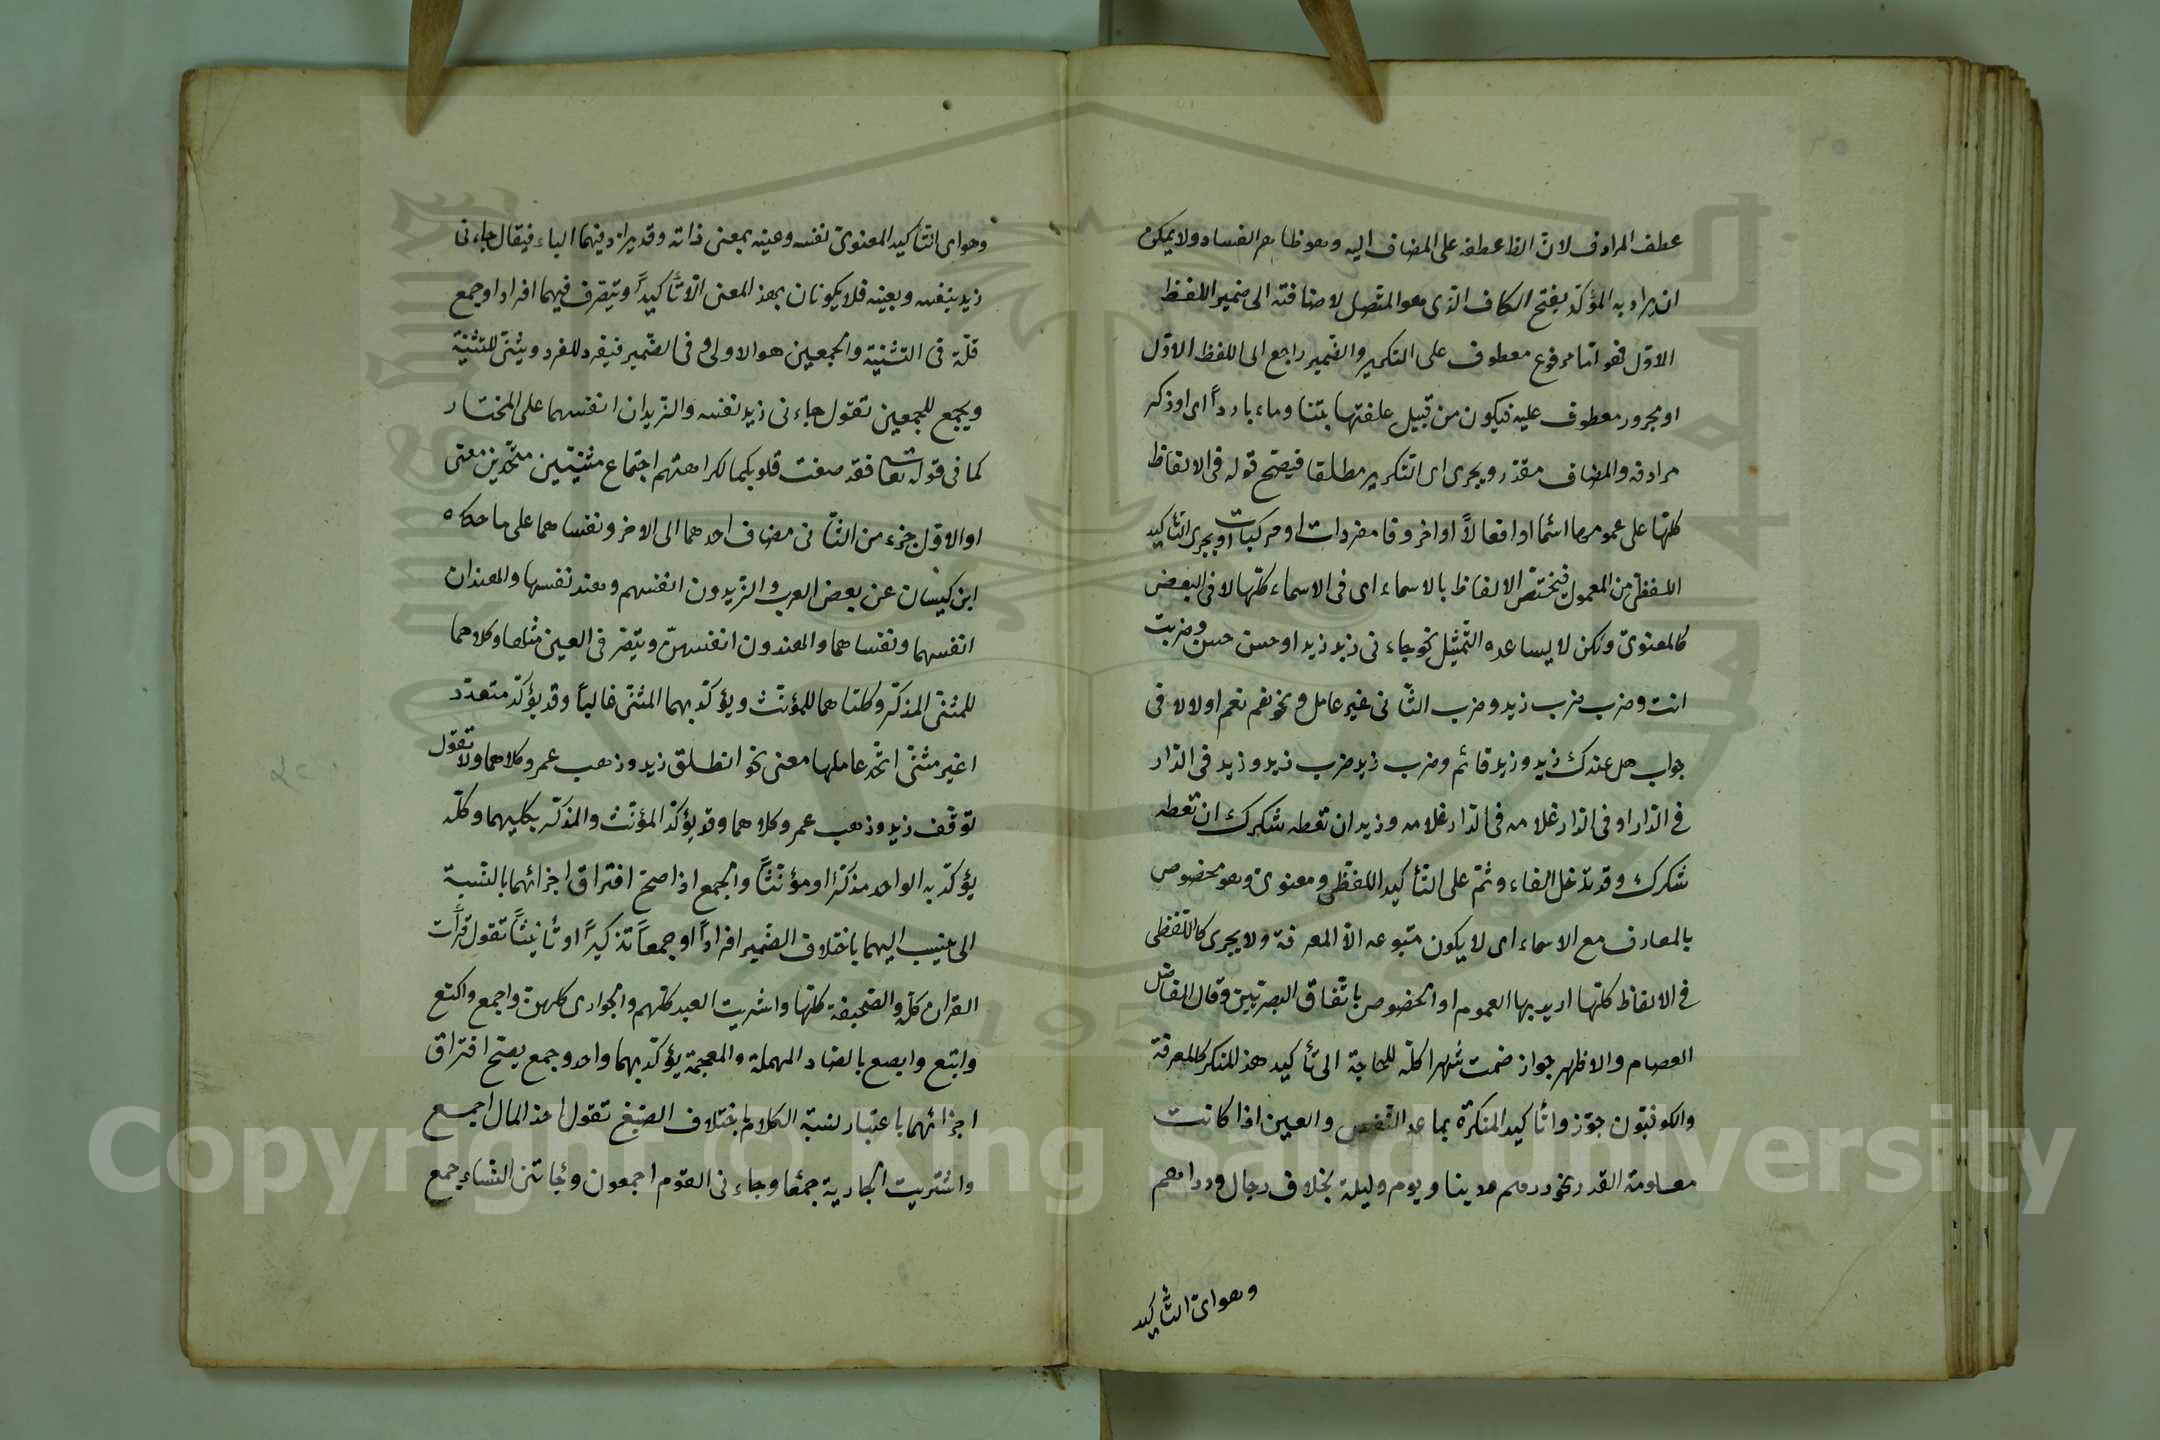 عطف المرادف لان الظ عطفه على المضاف اليه وهو ظاهر الفساد ولا يمكن
ان يراد به المؤكد بفتح الكاف الذى هو المتصل لاضافته الى ضمير اللفظ
الاول فهو اما مرفوع معطوف على التكرير والضمير راجع الى اللفظ الاول
او مجرور معطوف عليه فيكون من قبيل علفتها بتنا وماء باردًا اى او ذكر
مرادفه والمضاف مقدر ويجرى اى التكرير مطلقا فيصح قوله فى الالفاظ
كلها على عمومها اسما او افعالاً او احروفا مفردات او مركبات او يجرى التأكيد
اللفظى من المعمول فيختص الالفاظ بالاسماء اى فى الاسماء كلها لا فى البعض
كالمعنوى ولكن لا يساعده التمثيل نحو جاءنى زيد زيد او حسن حسن وضربت
انت وضرب ضرب زيد وضرب الثانى غير عامل ونحو نعم نعم او لا لا فى
جواب هل عندك زيد وزيد قائم وضرب زيد ضرب زيد وزيد فى الدار
فى الدار او فى الدار غلامه فى الدار غلامه وزيد ان تعطه شكرك ان تعطه
شكرك وقد تدخل الفاء وثم على التأكيد اللفظى ومعنوى وهو مخصوص
بالمعارف مع الاسماء اى لا يكون متبوعه الا المعرفة ولا يجرى كاللفظى
فى الالفاظ كلها اريد بها العموم او الخصوص باتفاق البصريين وقال الفاضل
العصام والاظهر جواز صمت شهرا كله للحاجة الى تأكيد هذ للنكر كالمعرفة
والكوفيون جوزوا تأكيد المنكرة بما عدا النفس والعين اذا كانت
معلومة القدر نحو درهم ودينا ويوم وليلة بخلاف رجال ودراهم
وهو اى التأكيد
وهو اى التأكيد المعنوى نفسه وعينه بمعنى ذاته وقد يزاد فيهما الباء فيقال جاءنى
زيد بنفسه وبعينه فلا يكونان بهذ المعنى الا تأكيدًا ويتصرف فيهما افراد او جمع
قلة فى التثنية والجمعين هو الاولى وفى الضمير فيفرد للمفرد ويثنى للتثنية
ويجمع للجمعين تقول جاءنى زيد نفسه والزيدان انفسهما على المختار
كما فى قوله تعا فقد صغت قلوبكما لكراهتهم اجتماع مثنيين متحدين معنى
او الاول جزء من الثانى مضاف احدهما الى الاخر ونفساهما على ما حكاه
ابن كيسان عن بعض العرب والزيدون انفسهم وهند نفسها والهندان
انفسهما ونفساهما والهندون انفسهن ويتصرف فى العين مثلها وكلاهما
للمثنى المذكر وكلتاهما للمؤنث ويؤكد بهما المثنى غالبًا وقد يؤكد متعدد
اغير مثنى اتحد عاملها معنى نحو انطلق زيد وذهب عمرو كلاهما ولا تقول
توقف زيد وذهب عمرو كلاهما وقد يؤكد المؤنث والمذكر بكليهما وكله
يؤكد به الواحد مذكرا او مؤنثًا والجمع اذا صح افتراق اجزائهما بالنسبة
الى ينسب اليهما باختلاف الضمير افرادًا او جمعاً تذكيرًا او تأنيثاً تقول قرأت
القران كله والصحيفة كلها واشريت العبد كلهم والجوارى كلهن واجمع واكتع
وابتع وابصع بالصاد المهملة والمعجمة يؤكد بهما واحد وجمع يصح افتراق
اجزائهما باعتبار نسبة الكلام باختلاف الصيغ تقول اخذ المال اجمع
واشتريت الجارية جمعا وجاءنى القوم اجمعون وجائتنى النساء جمع
Copyright © King Saud University
1957